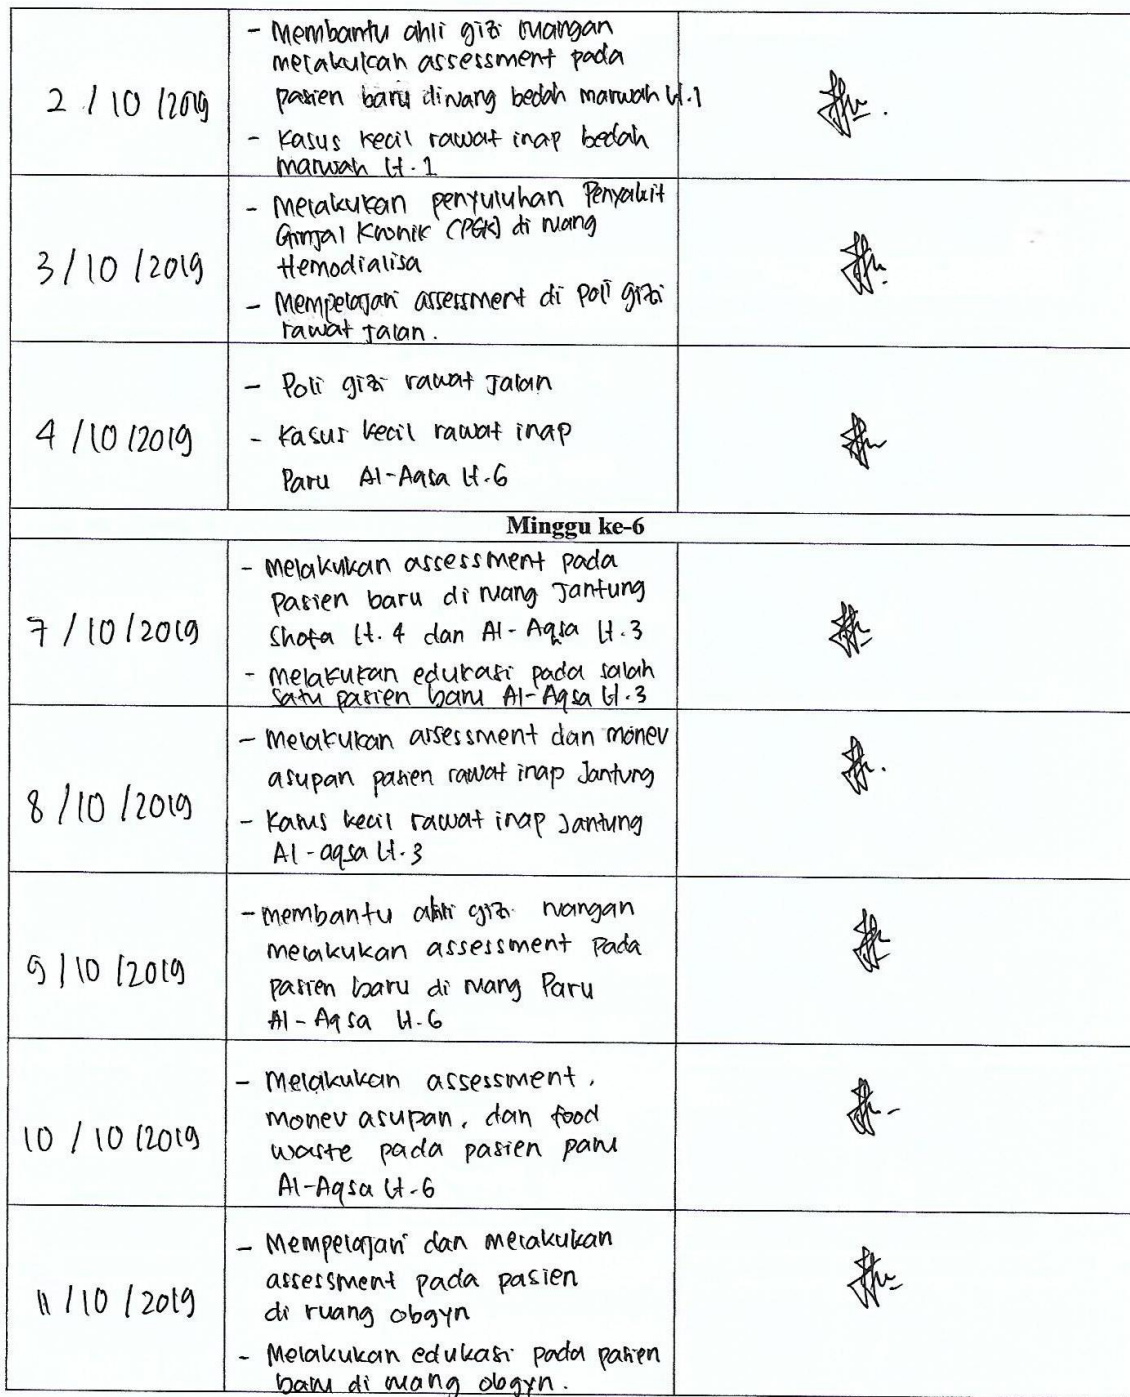 2/10/2019
- Membantu ahli gizi ruangan
melakukan assessment pada
pasien baru diruang bedah marwah lt.1
- Kasus kecil rawat inap bedah
marwah lt.1
3/10/2019
- Melakukan penyuluhan Penyakit
Ginjal Kronik (PGK) di ruang
Hemodialisa
- Mempelajari assessment di Poli gizi
rawat jalan.
4/10/2019
- Poli gizi rawat Jalan
- Kasus kecil rawat inap
Paru Al-Aqsa lt.6
Minggu ke-6
7/10/2019
- Melakukan assessment pada
Pasien baru di ruang Jantung
Shofa lt. 4 dan Al-Aqsa lt.3
- Melakukan edukasi pada salah
satu pasien baru Al-Aqsa lt.3
8/10/2019
- Melakukan assessment dan monev
asupan pasien rawat inap Jantung
- Kasus kecil rawat inap Jantung
Al-aqsa lt.3
9/10/2019
- Membantu ahli gizi ruangan
melakukan assessment pada
pasien baru di ruang Paru
Al-Aqsa lt.6
10/10/2019
- Melakukan assessment,
monev asupan, dan food
waste pada pasien paru
Al-Aqsa lt.6
11/10/2019
- Mempelajari dan melakukan
assessment pada pasien
di ruang obgyn
- Melakukan edukasi pada pasien
baru di ruang obgyn.